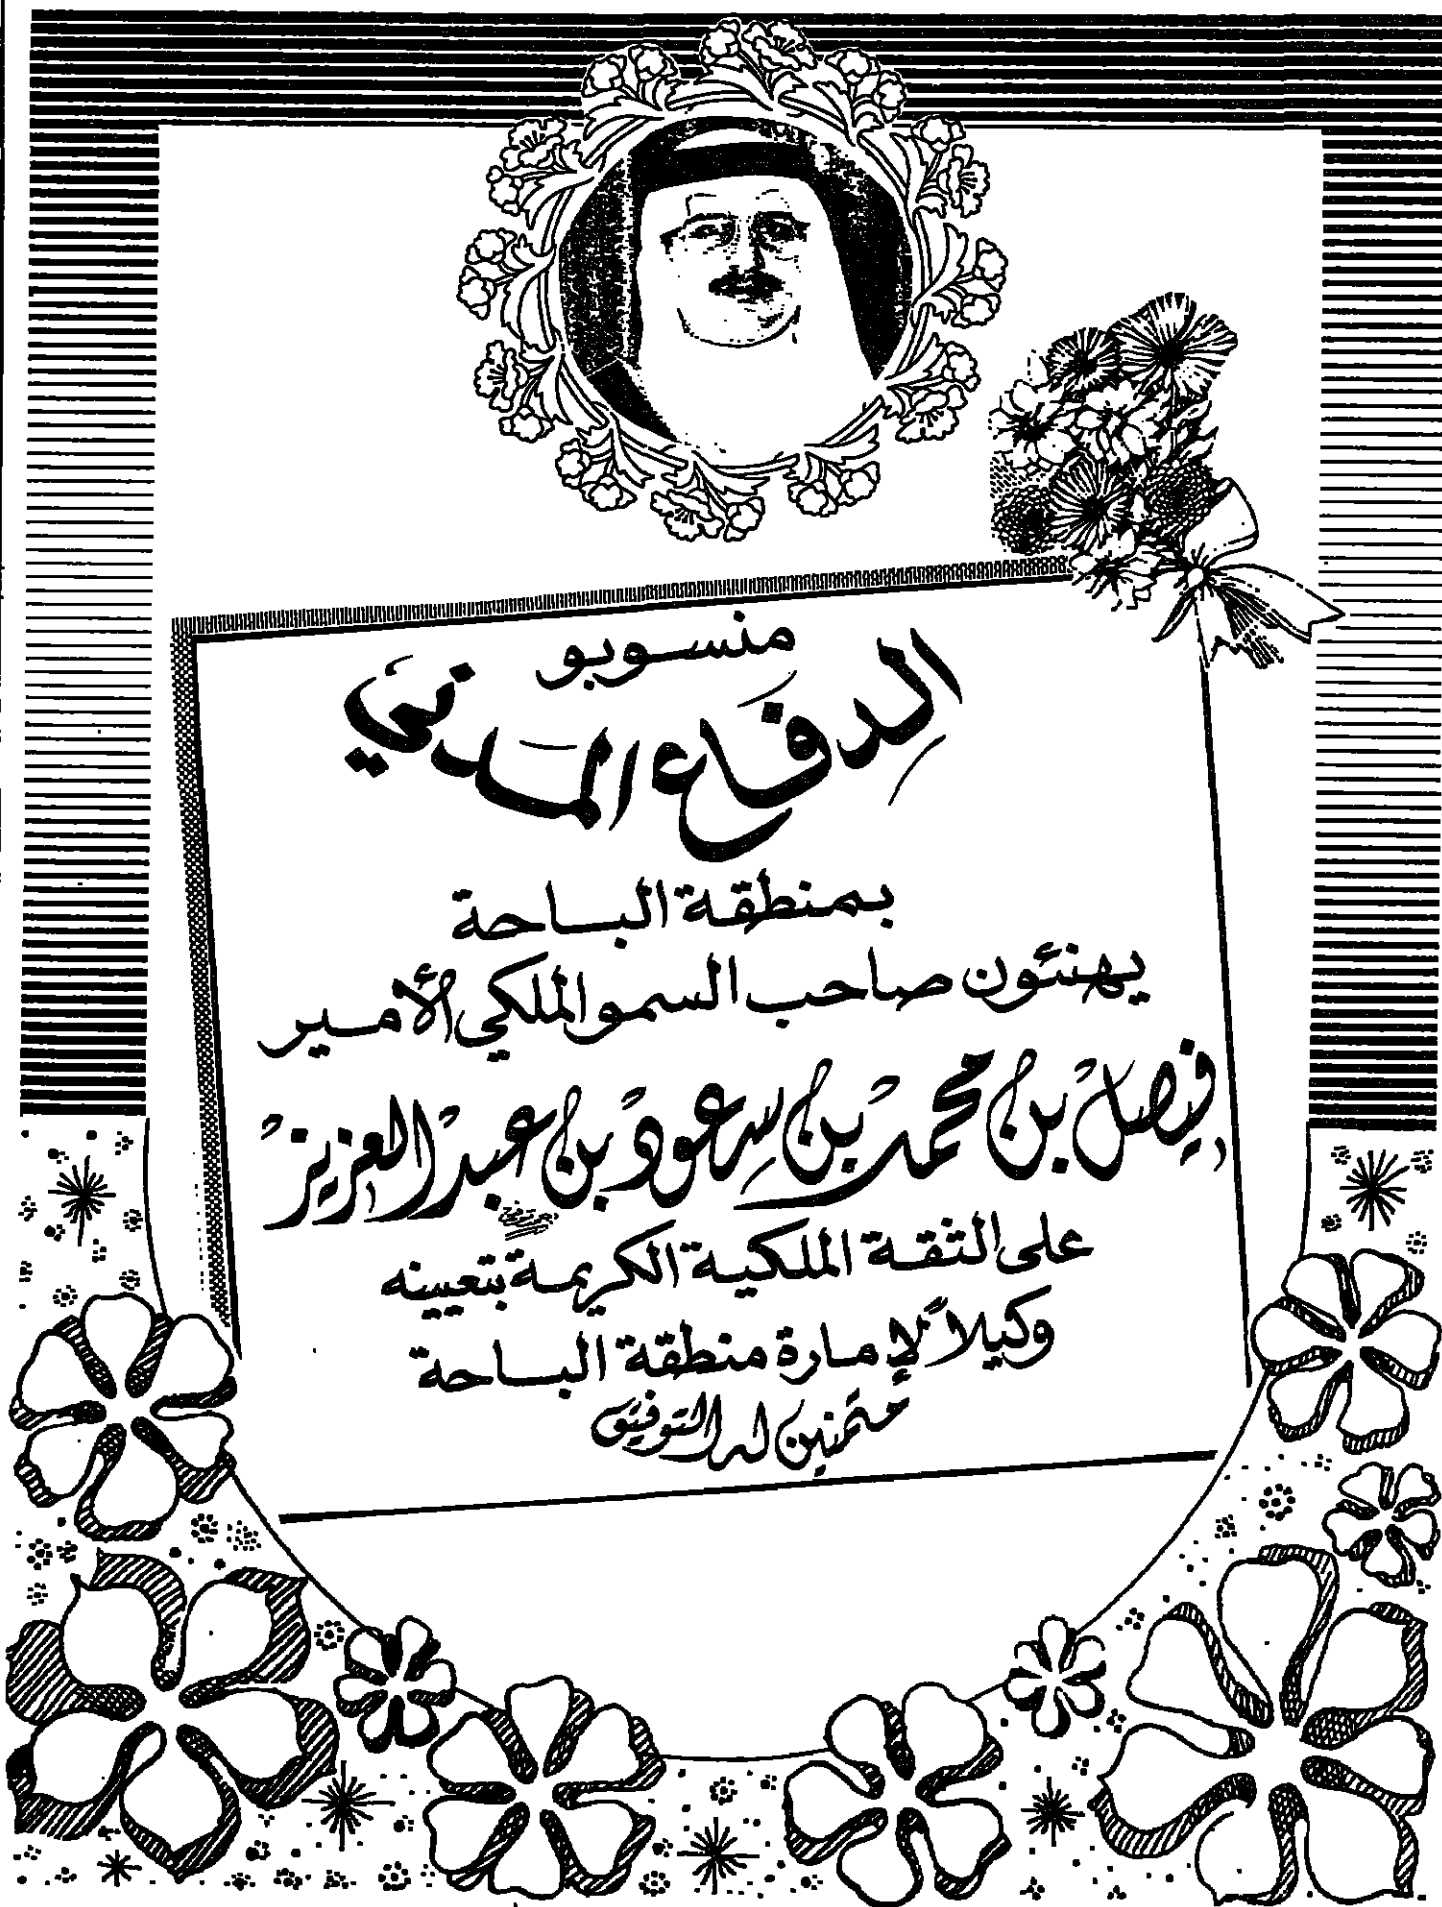 منسوبو
الدفاع المدني
بمنطقة الباحة
يهنئون صاحب السمو الملكي الأمير
فيصل بن محمد بن سعود بن عبد العزيز
على الثقة الملكية الكريمة بتعيينه
وكيلاً لإمارة منطقة الباحة
متمنين له التوفيق